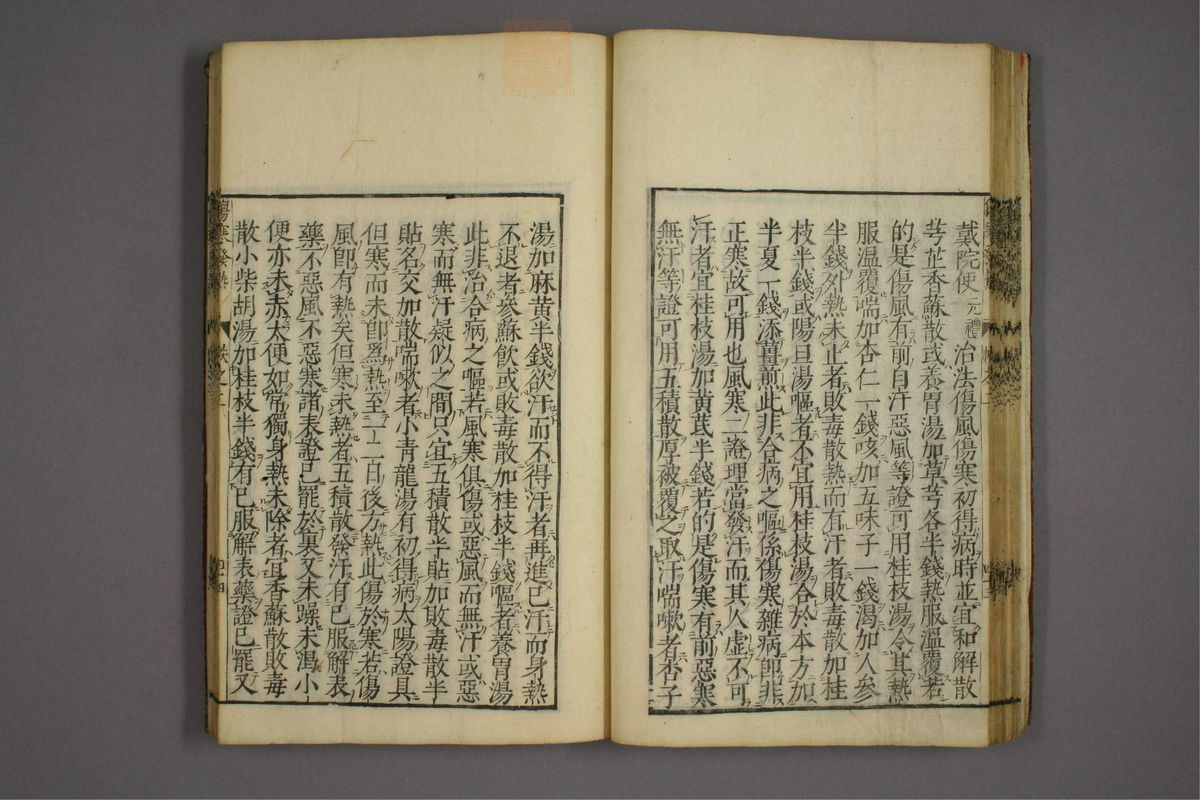 戴院使元禮治法傷風傷寒初得病時並宜和解散
芎芷香蘇散或養胃湯加草芎各半錢熱服溫覆若
的是傷風有前自汗惡風等證可用桂枝湯令其熱
服溫覆喘加杏仁一錢咳加五味子一錢渴加人參
半錢外熱未止者敗毒散熱而有汗者敗毒散加桂
枝半錢或陽旦湯嘔者不宜用桂枝湯合於本方加
半夏一錢添薑煎此非合病之嘔係傷寒雜病即非
正寒故可用也風寒二證理當發汗而其人虛不可
汗者宜桂枝湯加黃芪半錢若的是傷寒有前惡寒
無汗等證可用五積散厚被覆之取汗喘嗽者杏子
湯加麻黃半錢欲汗而不得汗者再進已汗而身熱
不退者參蘇飲或敗毒散加桂枝半錢嘔者養胃湯
此非治合病之嘔若風寒俱傷或惡風而無汗或惡
寒而無汗疑似之間只宜五積散半貼加敗毒散半
貼名交加散喘嗽者小青龍湯有初得病太陽證具
但寒而未即爲熱至一二日後方熱此傷於寒若傷
風即有熱矣但寒未熱者五積散發汗有已服解表
藥不惡風不惡寒諸表證已罷於裏又未躁未渴小
便亦未赤大便如常獨身熱未除者宜香蘇散敗毒
散小柴胡湯加桂枝半錢有已服解表藥證已罷又
傷寒